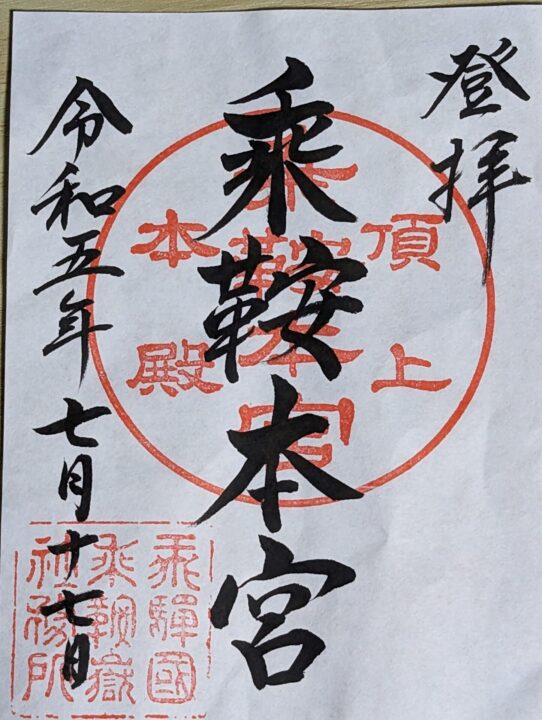 登拝
頂上
乗鞍本宮
本殿
乗鞍本宮
令和五年七月十七日
飛驒國
乗鞍嶽
社務所